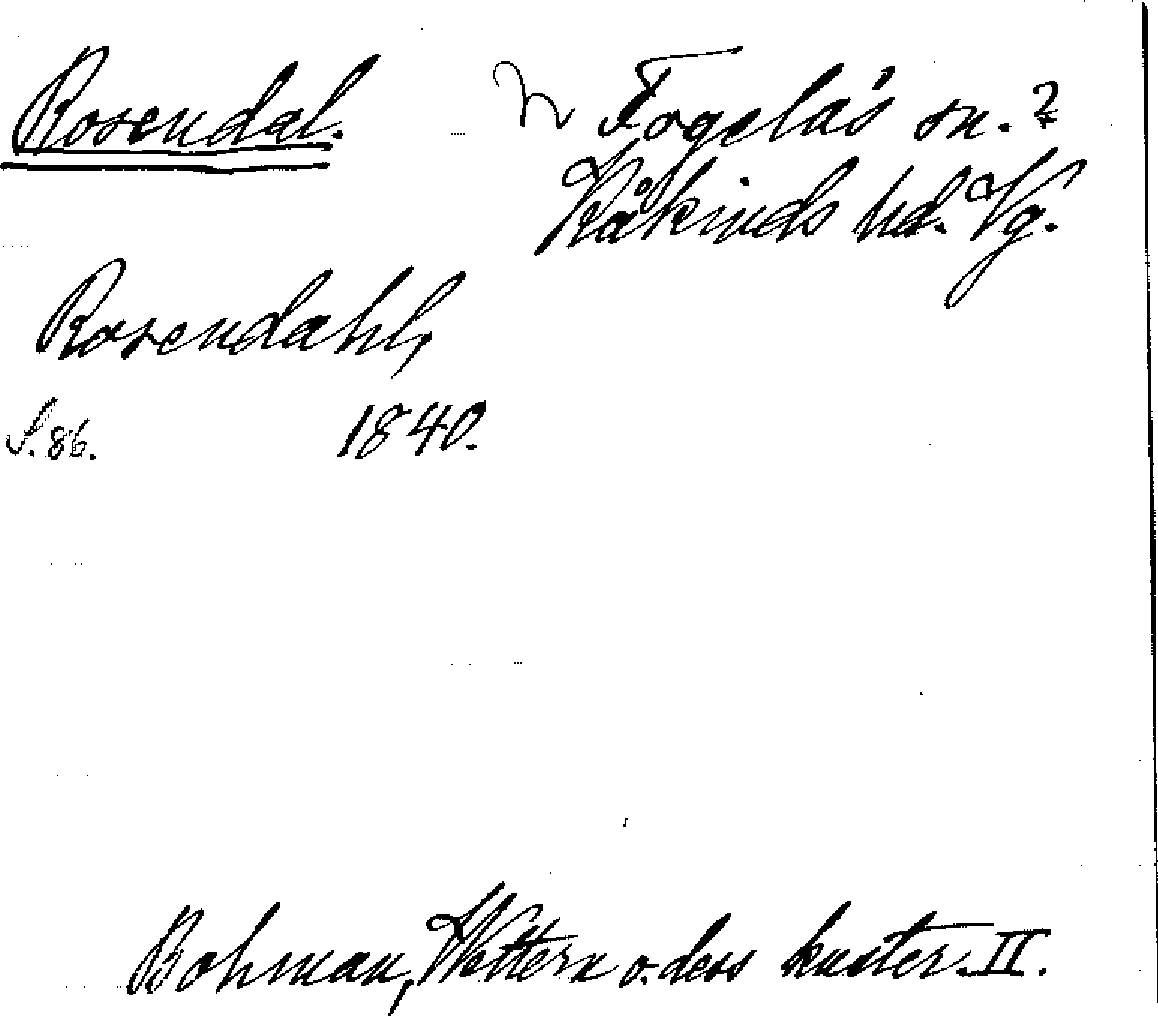 Rosendal. n Fogelås sn. ?
Kåkinds hd. Vg.
Rosendahl,
S. 86. 1840.
Bohman, Wettern o. dess kuster. II.